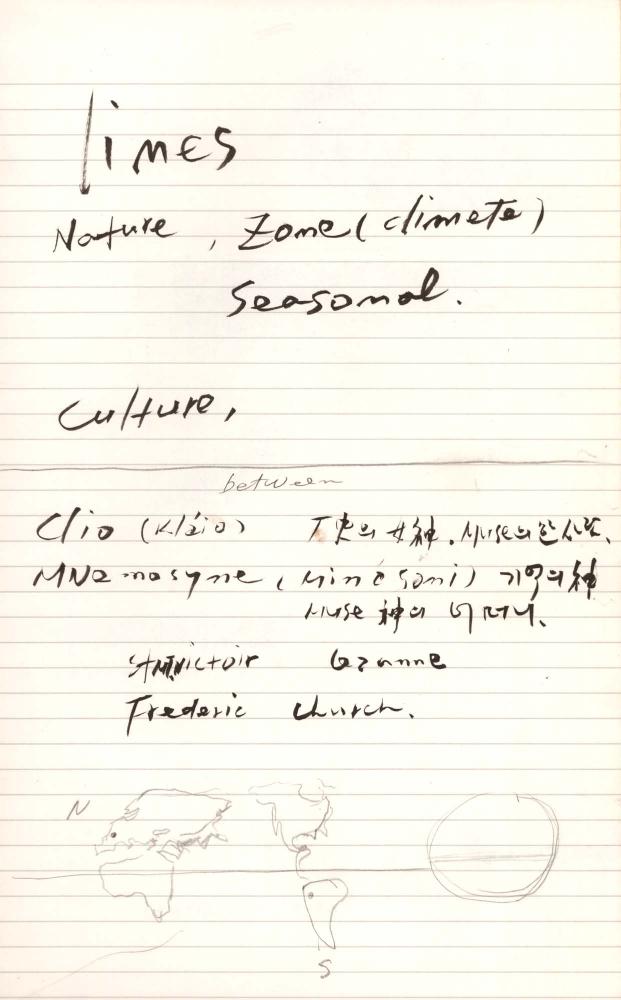 limes
Nature, Zone (climete)
Seasonal.
Culture,
between
Clio (Kláio) 史의 女神. Muse의 한 사람.
MNEmosyne, (ni) 기억의 神
Muse 神의 어머니.
victoir
Frederic church.
N
S